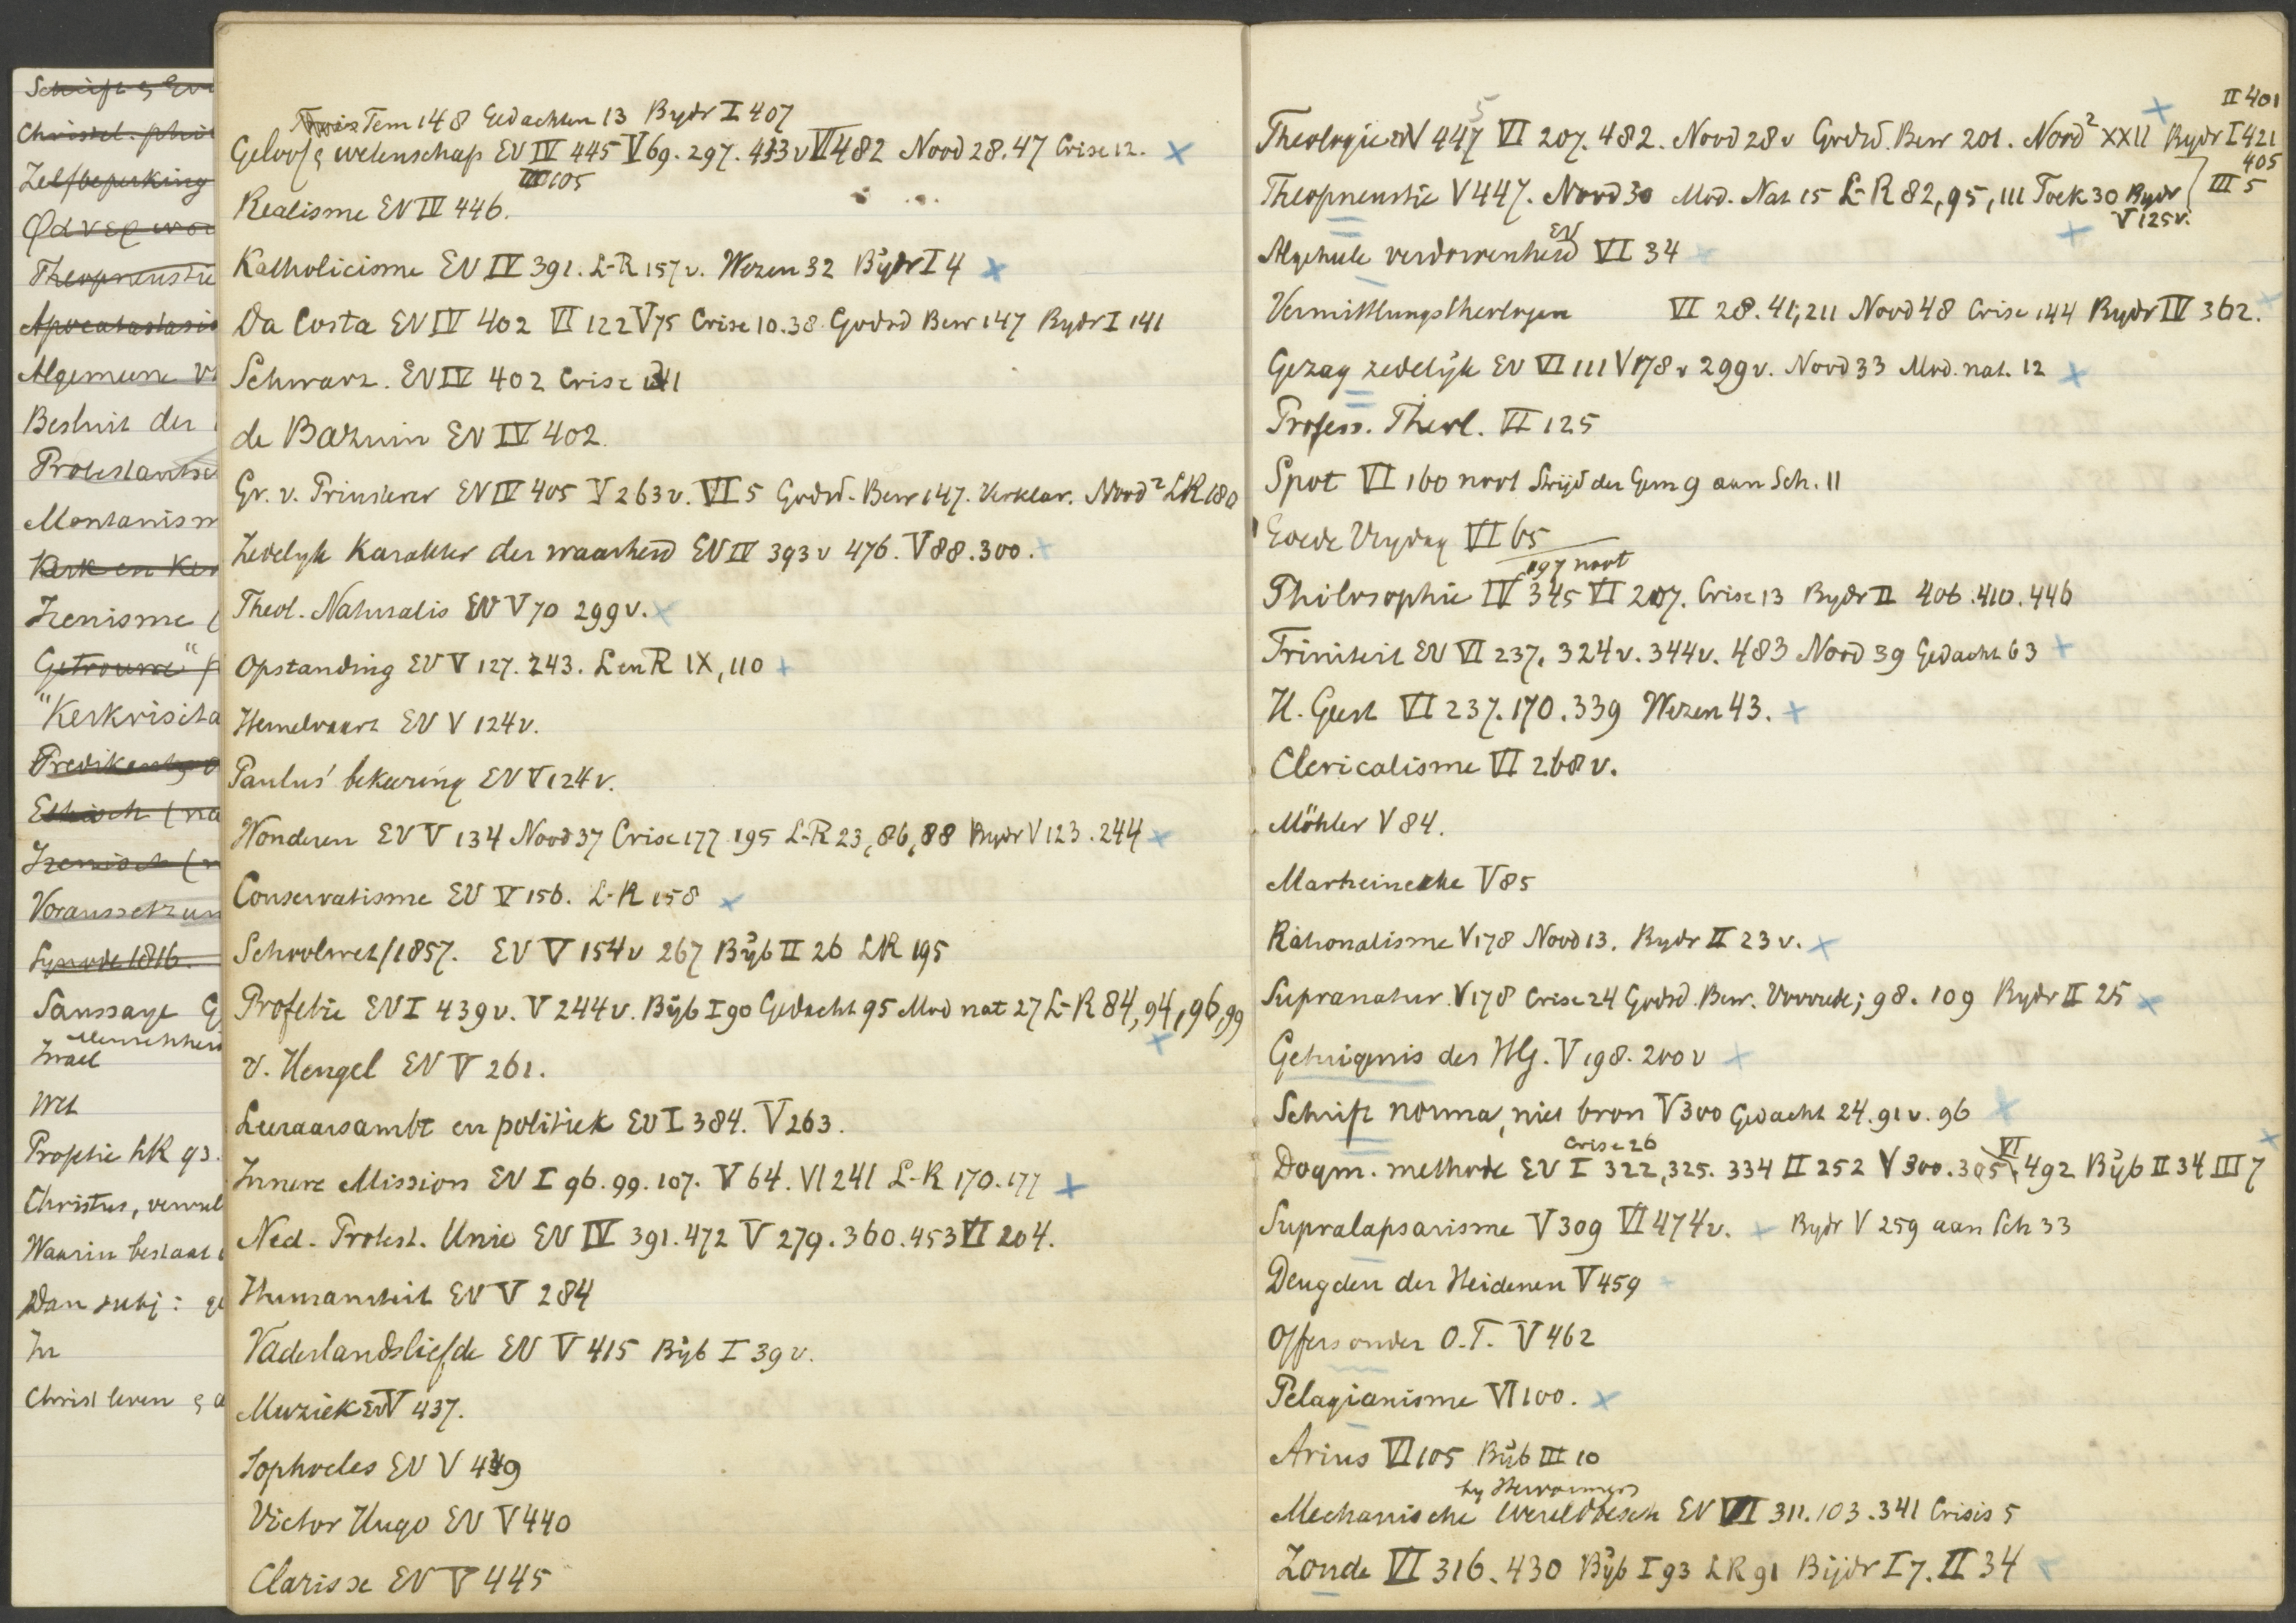 Schrift &
Christel. phi
Zelfbeperking
Theopneustie
Apocatastasis
Algemeene v
Besluit der
Protestantse
Montanism
Kerk en Ker
Irenisme (
Getrouwe"
"Kerkvisita
Predikants
Ethisch (na
Irenisch (n
Voraussetzun
Synode 1816.
Saussaye G
Israel
Wet
Prophetie LR 93.
Christus, vervul
Waarin bestaat
Dan subj: ge
In
Christ leven &
Tem 148 Gedachten 13 Bydr I 407
Geloof & wetenschap EV IV 445 V 69. 297. 433v VI 482 Nood 28. 47 Crise 12. x
III 105
Realisme EV IV 446.
Katholicisme EV IV 391. L-R 157v. Wezen 32 Bijdr I 4 x
Da Costa EV IV 402 VI 122 V 75 Crise 10. 38 Godsd Bew 147 Bydr I 141
Schwarz. EV IV 402 Crise 141
de Bazuin EV IV 402.
Gr. v. Prinsterer EV IV 405 V 263v. VI 5 Godsd. Bew 147. Verklar. Nood² LR 180
Zedelyk Karakter der waarheid EV IV 393v 476. V 88. 300. +
Theol. Naturalis EV V 70 299v. x
Opstanding EV V 127. 243. L en R IX, 110 +
Hemelvaart EV V 124v.
Paulus' bekeering EV V 124v.
Wonderen EV V 134 Nood 37 Crise 177 195 L-R 23, 86, 88 Bydr V 123. 244 x
Conservatisme EV V 156. L-R 158 x
Schoolwet/1857. EV V 154v 267 Bijb II 26 LR 195
Profetie EV I 439v. V 244v. Bijb I 90 Gedacht 95 Mod nat 27 L-R 84, 94, 96, 99
x
v. Hengel EV V 261.
Leeraarsambt en politiek EV I 384. V 263.
Innere Mission EV I 96. 99. 107. V 64. VI 241 L-R 170. 177 x
Ned. Protest. Unie EV IV 391. 472 V 279. 360. 453 VI 204.
Humaniteit EV V 284
Vaderlandsliefde EV V 415 Bijb I 39v.
Muziek EV V 437.
Sophocles EV V 439
Victor Hugo EV V 440
Clarisse EV V 445
II 401
Theologie EV V 447 VI 207. 482. Nood 28v Godsd. Bew 201. Nood² XXII Bydr I 421
405
Theopneustie V 447. Nood 30 Mod. Nat 15 L-R 82, 95, 111 Toek 30 Bydr III 5
V 125v.
EV
Algeheele verdorvenheid VI 34
Vermittlungstheologen VI 28. 41, 211 Nood 48 Crise 144 Bydr IV 362.
Gezag zedelijk EV VI 111 V 178v 299v. Nood 33 Mod. nat. 12 x
Profess. Theol. VI 125
Spot VI 160 noot Strijd der Gem 9 aan Sch. 11
Goede Vrydag VI 65
197 noot
Philosophie IV 345 VI 207. Crise 13 Bydr II 406. 410. 446
Triniteit EV VI 237. 324v. 344v. 483 Nood 39 Gedacht 63 +
H. Geest VI 237. 170. 339 Wezen 43. +
Clericalisme VI 268v.
Möhler V 84.
Marheineke V 85
Rationalisme V 178 Nood 13. Bydr II 23v. x
Supranatur. V 178 Crise 24 Godsd. Bew. Voorrede; 98. 109 Bydr II 25 x
Getuigenis des HG. V 198. 200v +
Schrift norma, niet bron V 300 Gedacht 24. 91v. 96 x
Crise 26 VI
Dogm. methode EV I 322, 325. 334 II 252 V 300. 305, 492 Bijb II 34 III 7
Supralapsarisme V 309 VI 474v. + Bydr V 259 aan Sch 33
Deugden der Heidenen V 459 +
Offers onder O.T. V 462
Pelagianisme VI 100. x
Arius VI 105 Bijb III 10
by Hervormers
Mechanische Wereldbesch EV VI 311. 103. 341 Crisis 5
Zonde VI 316. 430 Bijb I 93 LR 91 Bijdr I 7. II 34